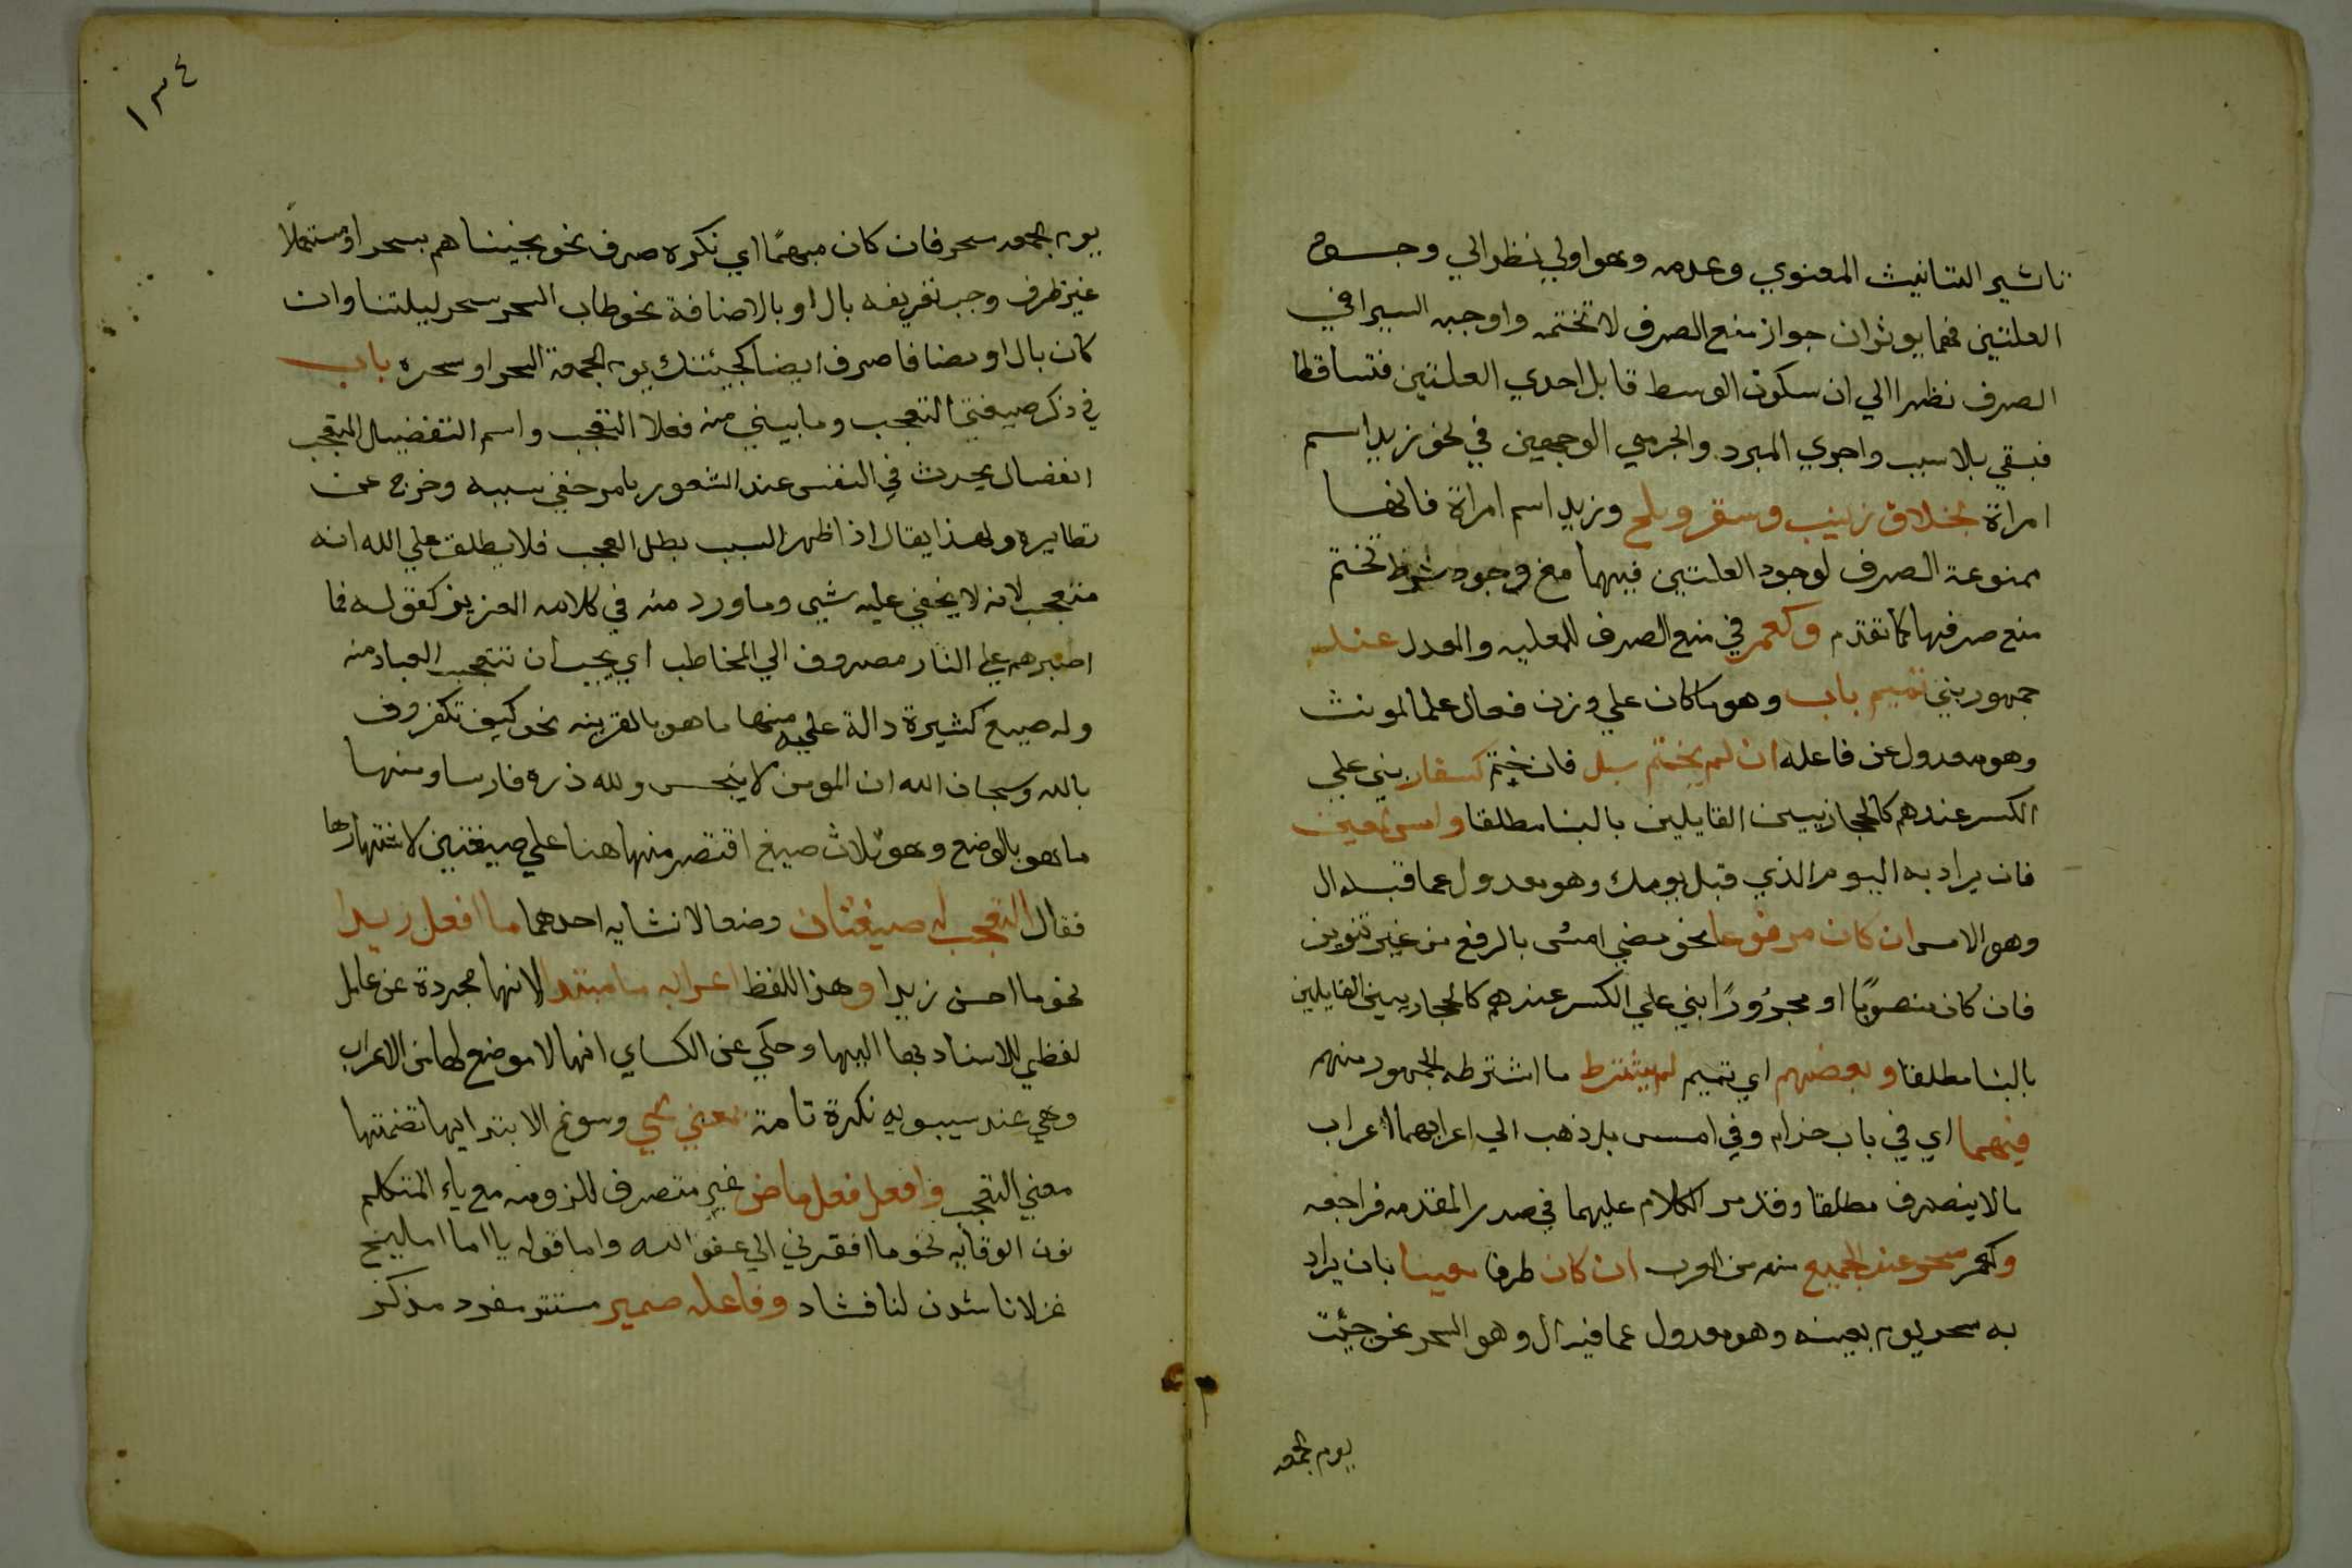 تاثير التانيث المعنوي وعدمه وهو اولي نظرا الي وجود
العلتين فهما يوثران جواز منع الصرف لا تحتمه واوجبه السيرافي
الصرف نظرا الي ان سكون الوسط قابل احدي العلتين فتساقطا
فبقي بلا سبب واجري المبرد والجرمي الوجهين في نحو زيد اسم
امراة بخلاف زينب وسقر وبلح وزيد اسم امراة فانها
ممنوعة الصرف لوجود العلتين فيهما مع وجود شرط تحتم
منع صرفها كما تقدم وكعمر في منع الصرف للعلميه والعدل عند
جمهور بني تميم باب وهو ما كان علي وزن فعال علما لمونث
وهو معدول عن فاعله ان لم يختم براء فان ختم كسفار بني علي
الكسر عندهم كالحجازيين القايلين بالبنا مطلقا وامس لمعين
فان يراد به اليوم الذي قبل يومك وهو معدول عما قبله ال
وهو الامس ان كان مرفوعا نحو مضي امس بالرفع من غير تنوين
فان كان منصوبًا او مجرُورًا بني علي الكسر عندهم كالحجازيين القايلين
بالبنا مطلقا وبعضهم اي تميم لم يشترط ما اشترطه الجمهور منهم
فيهما اي في باب حذام وفي امس بل ذهب الي اعرابهما اعراب
مالا ينصرف مطلقا وقد مر الكلام عليهما في صدر المقدمه فراجعه
وكعمر سحر عند الجميع منهم من العرب ان كان ظرفا معينا بان يراد
به سحر يوم بعينه وهو معدول عما فيه ال وهو السحر نحو جئت
يوم الجمعه
١٣٤
يوم الجمعه سحر فان كان مبهمًا اي نكره صرف نحو نجيناهم بسحر او مستعملًا
غير ظرف وجب تعريفه بال او بالاضافة نحو طاب السحر سحر ليلتنا وان
كان بال او مضافا صرف ايضا كجئتك يوم الجمعة السحر او سحره باب
في ذكر صيغتي التعجب وما يبني منه فعلا التعجب واسم التفضيل التعجب
انفعال يحدث في النفس عند الشعور بامر خفي سببه وخرج عن
نظايره ولهذا يقال اذا ظهر السبب بطل العجب فلا يطلق علي الله انه
متعجب لانه لا يخفي عليه شي وما ورد منه في كلامه العزيز كقوله فما
اصبرهم علي النار مصروف الي المخاطب اي يجب ان تتعجب العباد منه
وله صيغ كثيرة دالة عليه منها ما هو بالقرينه نحو كيف تكفرون
بالله وسبحان الله ان المومن لا ينجس ولله دره فارسا ومنها
ما هو بالوضع وهو ثلاث صيغ اقتصر منها هنا علي صيغتين لاشتهارها
فقال التعجب له صيغتان وضعا لانشايه احدهما ما افعل زيدا
نحو ما احسن زيدا وهذا اللفظ اعرابه ما مبتدا لانها مجردة عن عامل
لفظي للاسناد بها اليها وحكي عن الكساي انها لا موضع لها من الاعراب
وهي عند سيبويه نكرة تامة بمعني شي وسوغ الابتدا بها تضمنها
معني التعجب وافعل فعل ماض غير متصرف للزومه مع ياء المتكلم
نون الوقايه نحو ما افقرني الي عفو الله واما قوله يا اما اميلح
غزلانا شدن لنا فشاد وفاعله ضمير مستتر مفرد مذكر